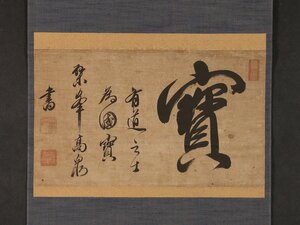 寶
有道之士
為國寶
檗峯高泉
書